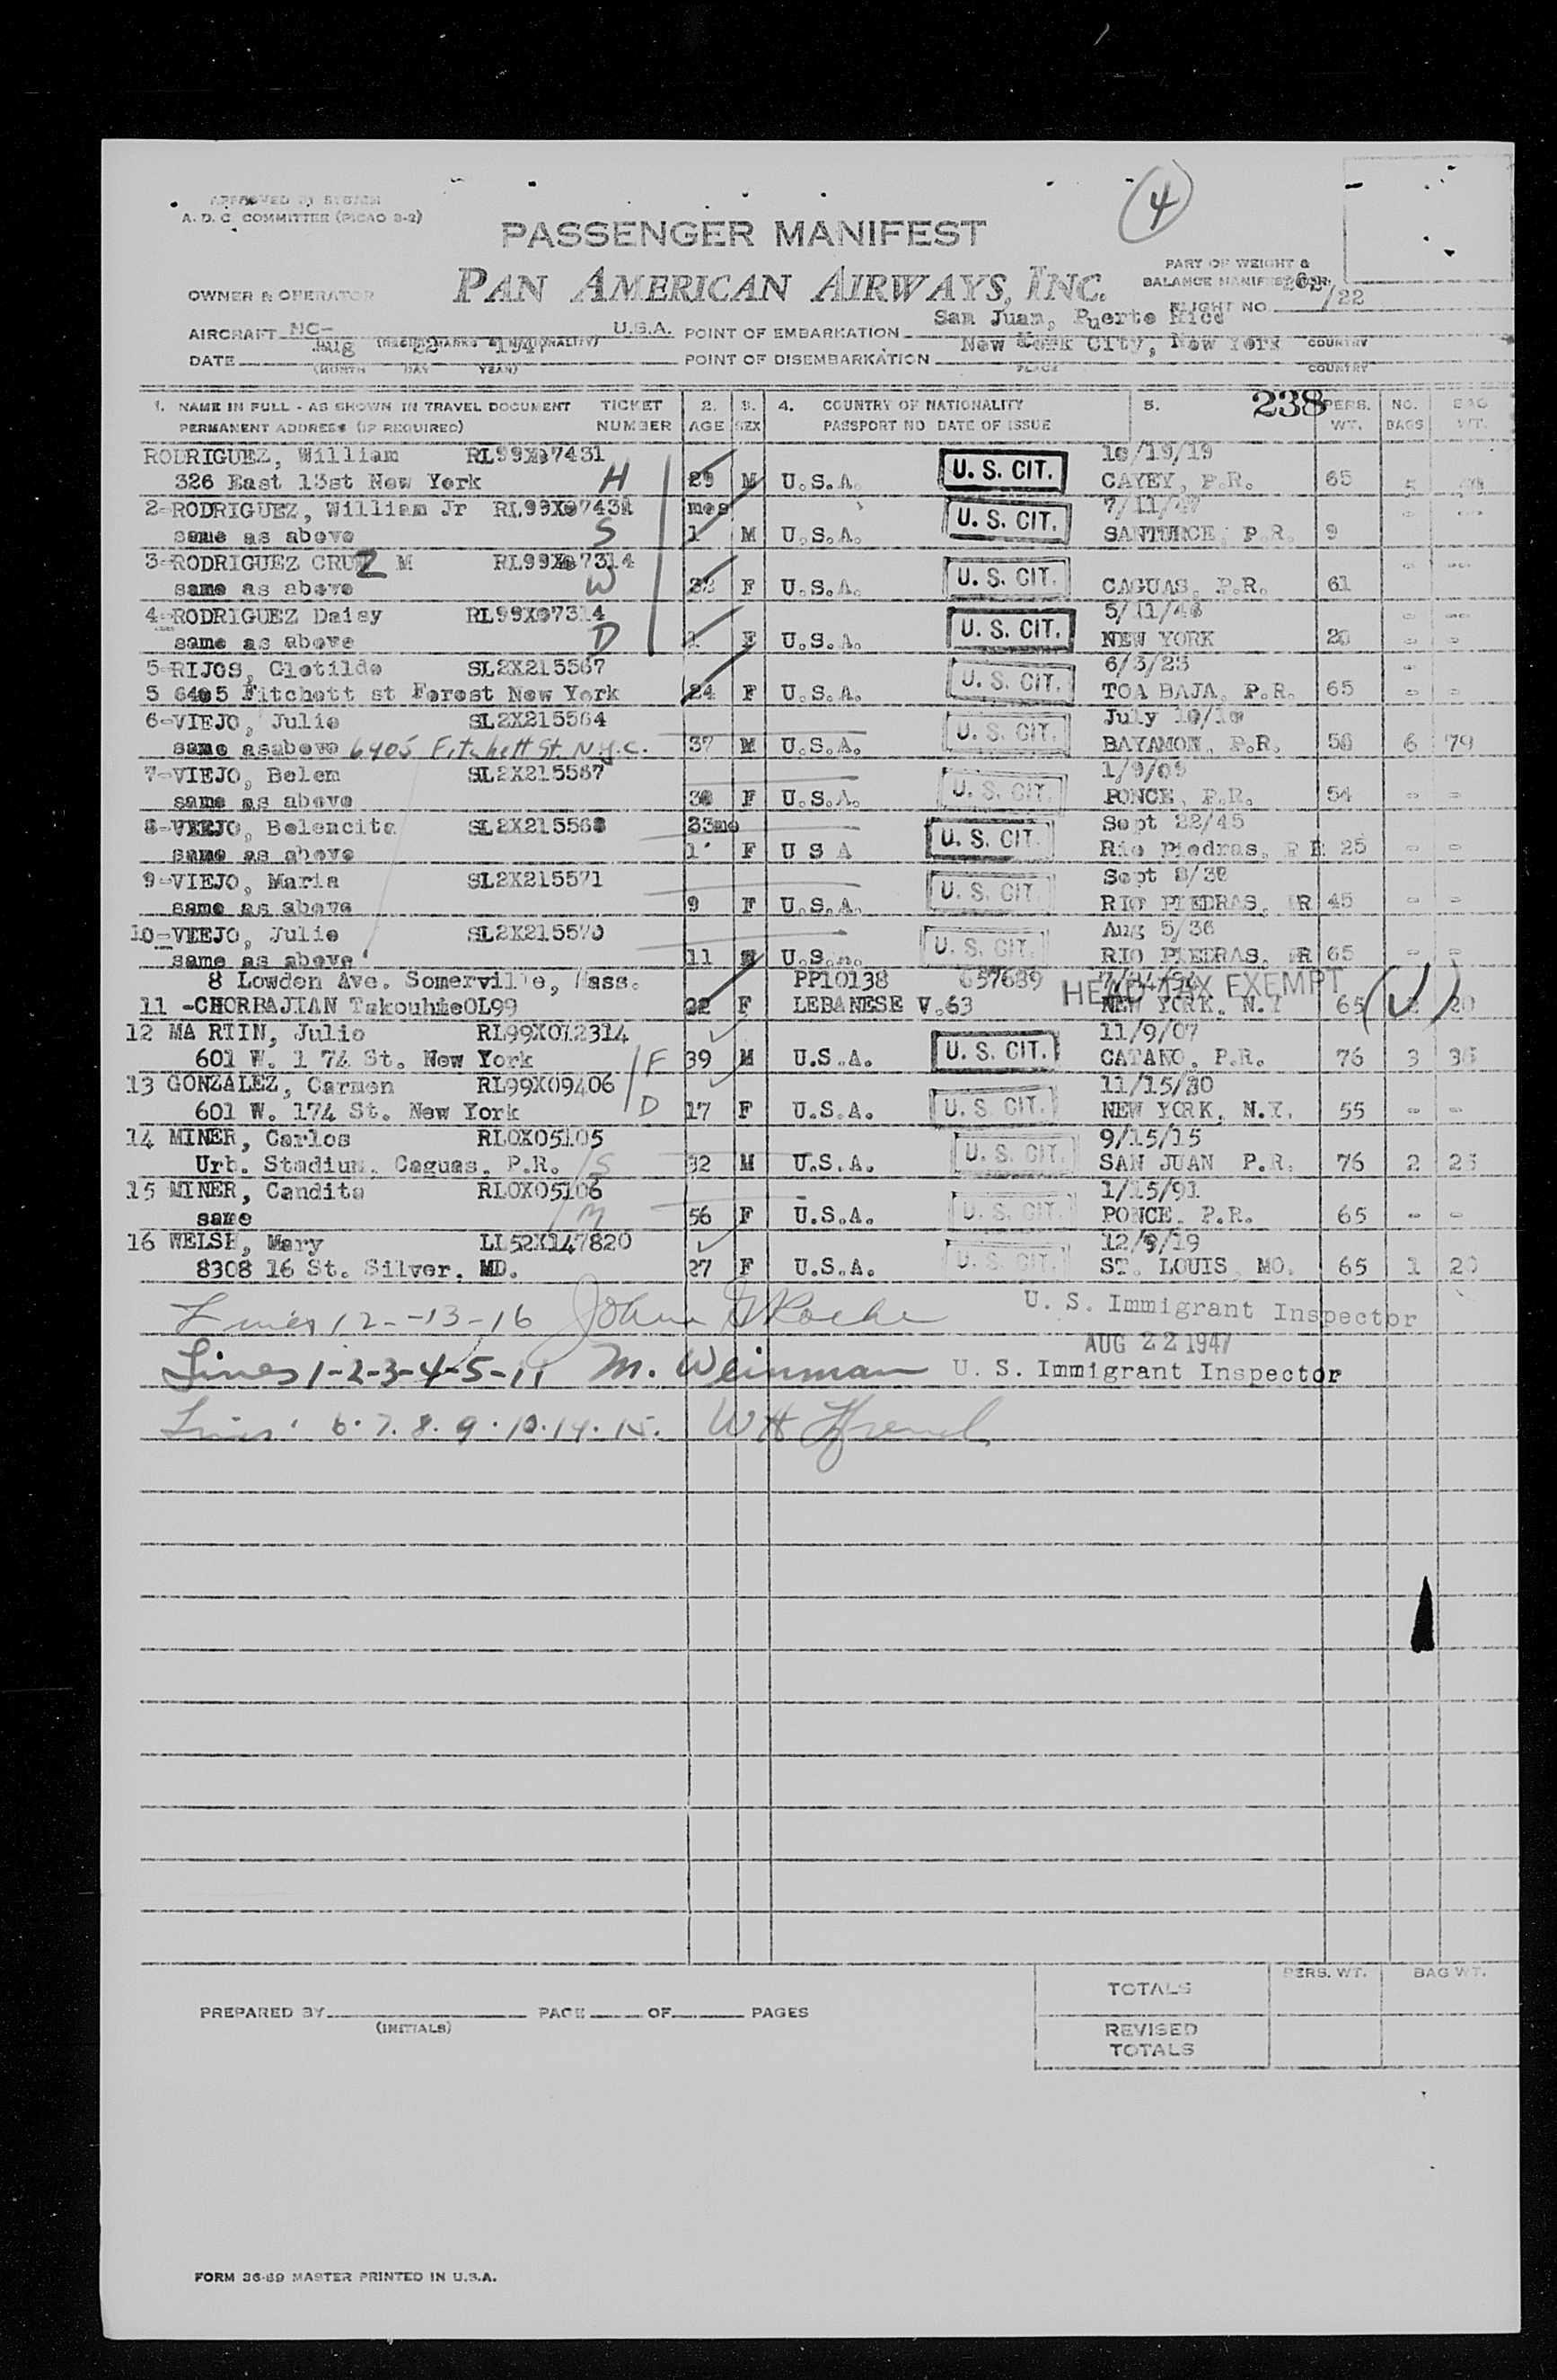 APPROVED BY
A. D. C. COMMITTEE (PICAO 3-2)
4
PASSENGER MANIFEST
PAN AMERICAN AIRWAYS, INC.
PART OF WEIGHT &
BALANCE MANIFEST FOR
FLIGHT NO. /22
OWNER & OPERATOR
AIRCRAFT NC- U.S.A. POINT OF EMBARKATION San Juan, Puerto Rico COUNTRY
DATE Aug 22 1947 POINT OF DISEMBARKATION New York City, New York
(MONTH DAY YEAR) PLACE COUNTRY
1. NAME IN FULL - AS SHOWN IN TRAVEL DOCUMENT TICKET 2. 3. 4. COUNTRY OF NATIONALITY 5. 238 PERS. NO. BAG
PERMANENT ADDRESS (IF REQUIRED) NUMBER AGE SEX PASSPORT NO DATE OF ISSUE WT. BAGS WT.
RODRIGUEZ, William RL99X07431 10/19/19
326 East 13st New York H 29 M U.S.A. U. S. CIT. CAYEY, P.R. 65 5
2-RODRIGUEZ, William Jr mos 7/11/47
same as above S 1 M U.S.A. U. S. CIT. SANTURCE, P.R. 9 - -
3-RODRIGUEZ CRUZ M RL99X07314 - --
same as above W 32 F U.S.A. U. S. CIT. CAGUAS, P.R. 61
4-RODRIGUEZ Daisy RL99X07314 - --
same as above D F U.S.A. U. S. CIT. NEW YORK - -
5-RIJOS, Clotilde SL2X215567 6/3/23
5 6405 Fitchett st Forest New York 24 F U.S.A. U. S. CIT. TOA BAJA, P.R. 65 - -
6-VIEJO, Julio SL2X215564 July 10/10
same asabove 6405 Fitchett St. N.Y.C. 37 M U.S.A. U. S. CIT. BAYAMON, P.R. 58 6 79
7-VIEJO, Belem SL2X215567 1/9/09
same as above F U.S.A. U. S. CIT. PONCE, P.R. 54 - -
8-VIEJO, Belencita SL2X215568 23mo Sept 22/45
same as above 1 F U S A U. S. CIT. Rio Piedras, P R 25 - -
9-VIEJO, Maria SL2X215571 Sept 8/38
same as above 9 F U.S.A. U. S. CIT. RIO PIEDRAS, PR 45 - -
10-VIEJO, Julio SL2X215570 Aug 5/36
same as above 11 M U.S.A. U. S. CIT. RIO PIEDRAS, PR 65 - -
8 Lowden Ave. Somerville, Mass. PP10138 657689 HEAD TAX EXEMPT
11 -CHORBAJIAN Takouhie OL99 22 F LEBANESE V.63 NEW YORK, N.Y 65 (√) 20
12 MA RTIN, Julio RL99X012314 11/9/07
601 W. 1 74 St. New York F 39 M U.S.A. U. S. CIT. CATANO, P.R. 76 3 36
13 GONZALEZ, Carmen RL99X09406 11/15/30
601 W. 174 St. New York D 17 F U.S.A. U. S. CIT. NEW YORK, N.Y. 55 - -
14 MINER, Carlos RLOX05105 9/15/15
Urb. Stadium, Caguas, P.R. S 32 M U.S.A. U. S. CIT. SAN JUAN P.R. 76 2 23
15 MINER, Candita RLOX05106 1/15/91
same M 56 F U.S.A. U. S. CIT. PONCE, P.R. 65 - -
16 WELSH, Mary LL52X147820 12/9/19
8308 16 St. Silver, MD. 27 F U.S.A. U. S. CIT. ST. LOUIS, MO. 65 1 20
Lines 12--13-16 John G Roche U. S. Immigrant Inspector
AUG 22 1947
Lines 1-2-3-4-5-11 M. Weinman U. S. Immigrant Inspector
Lines 6.7.8.9.10.14.15. W H
TOTALS PERS. WT. BAG WT.
PREPARED BY PAGE OF PAGES
(INITIALS)
REVISED
TOTALS
FORM 36-69 MASTER PRINTED IN U.S.A.